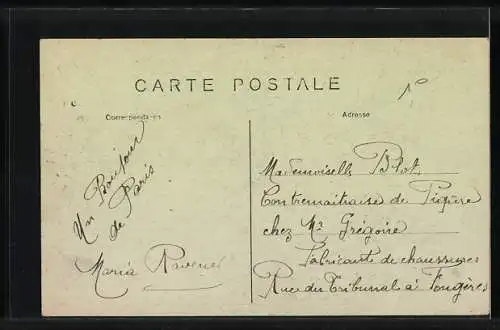 CARTE POSTALE
Correspondance
Adresse
Un Boujour
de Paris
Maria Ravenel
Mademoiselle Blot
Contremaitraise de Piqûre
chez Mr Grégoire
Fabricante de chaussures
Rue du Tribunal à Fougères